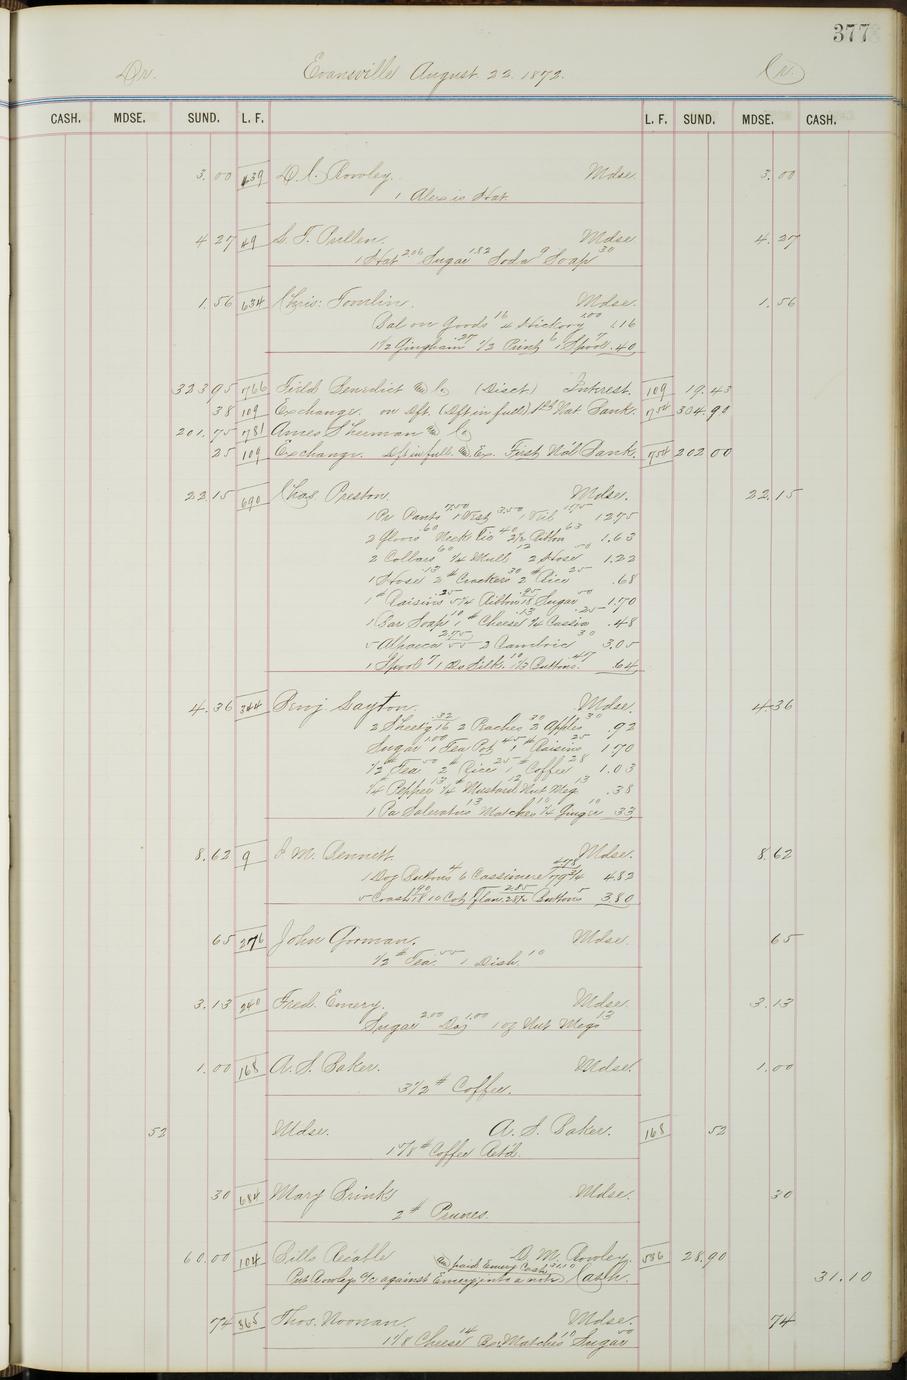 377
Dr. Evansville August 22. 1872. Cr.
CASH. MDSE. SUND. L. F. L. F. SUND. MDSE. CASH.
3.00 439 D. L. Rowley. Mdse. 3.00
1 Alexis Hat
4 27 49 S. T. Pullen. Mdse 4.27
1 Hat 2.06 Sugar 1.82 Soda 9 Soap 30
1.56 634 Chris: Tomlin. Mdse. 1.56
Bal on Goods 16 4 Hickory 1.00 1.16
1 1/2 Gingham 27 1/2 Print 6 1 Spool 7 .40
323 95 766 Field Benedict & Co (Disct) Interest. 109 19.43
38 109 Exchange on Dft. (Dft in full) 1st Nat Bank. 754 304.90
201.75 781 Ames Sherman & Co
25 109 Exchange. Dft in full. & Ex. First Nat'l Bank. 754 202 00
22 15 690 Chas Preston. Mdse. 22.15
1 Pr Pants 7.50 1 Vest 3.50 1 Veil 1.75 12.75
2 Gloves 60 Neck Tie 40 2 1/2 Ribbon 63 1.63
2 Collars 60 1/4 Mull 12 2 Hose 50 1.22
1 Hose 13 2 # Crackers 30 2 # Rice 25 .68
1 # Raisins .25 5 1/4 Ribbon 18 .95 Sugar 50 1.70
1 Bar Soap 10 1 # Cheese .13 1/4 Cassia .25 .48
5 Alpaca 55 2.75 2 Cambric 30 3.05
1 Spool 7 1 Do Silk. 10 1 1/3 Buttons. 47 .64
4.36 344 Benj Layton. Mdse. 4.36
2 Sheet'g 16 .32 2 Peaches 30 2 Apples 30 .92
Sugar 1.00 1 Tea Pot 45 1 # Raisins 25 1.70
1/2 # Tea 50 2 # Rice 25 1 # Coffee 28 1.03
1/4 Pepper 13 1/4 # Mustard 12 Nut Meg 13 .38
1 Pa Saleratus 13 Matches 10 1/4 Ginger 10 .33
8.62 9 J M. Bennett. Mdse. 8.62
1 Doz Buttons 4 6 Cassimere 79 3/4 4.78 4.82
5 Crash 18 .90 10 Cot Flan. 28 1/2 2.85 Buttons 5 3.80
65 276 John Gorman. Mdse. 65
1/2 # Tea. 55 1 Dish. 10
3.13 240 Fred. Emery. Mdse. 3.13
Sugar 2.00 Do 1.00 1 oz Nut Megs 13
1.00 168 A. S. Baker. Mdse. 1.00
3 1/2 # Coffee.
52 Mdse. A. S. Baker. 168 52
1 7/8 # Coffee Ret'd.
30 684 Mary Brink Mdse. 30
2 # Prunes.
60.00 104 Bills Rec'able D. M. Rowley 536 28.90
& paid Emery Cash 31.10
Put Rowleys a/c against Emery into a note Cash. 31.10
74 365 Thos. Noonan. Mdse. 74
1 1/8 Cheese 14 Bx. Matches 10 Sugar 50